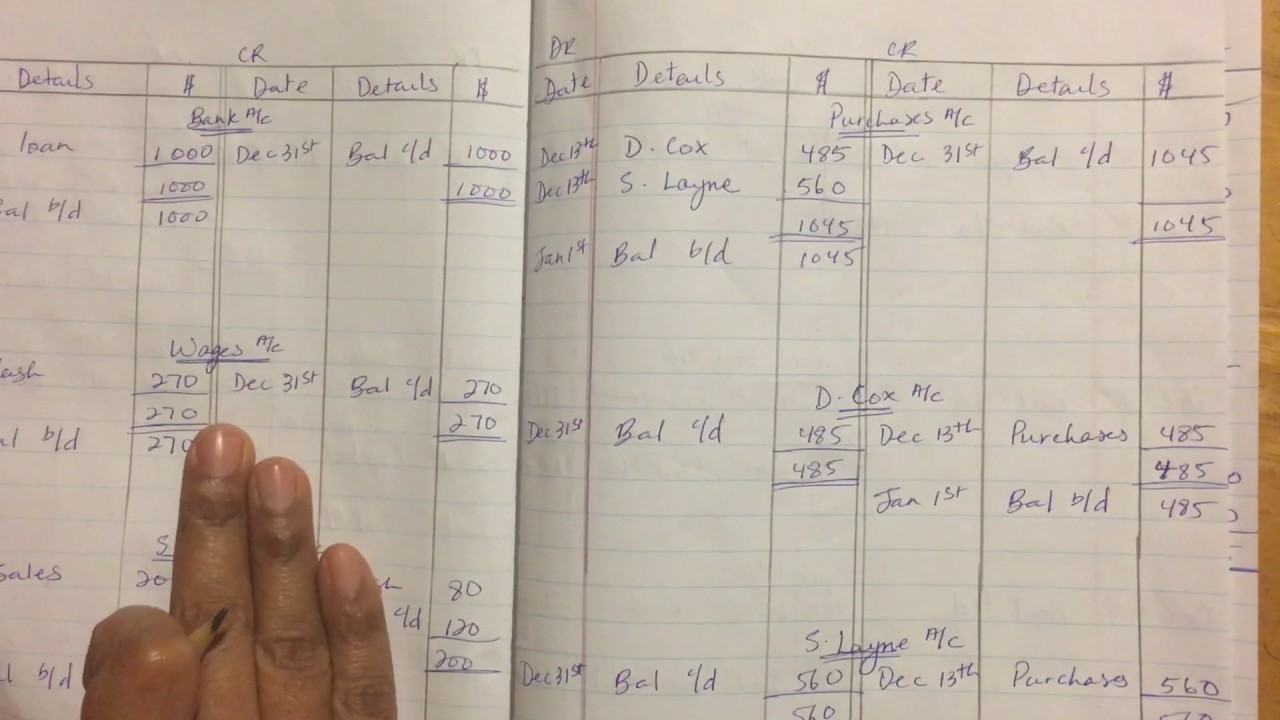 CR
Details $ Date Details $
Bank A/c
loan 1000 Dec 31st Bal c/d 1000
1000 1000
b/d 1000
Wages A/c
270 Dec 31st Bal c/d 270
270 270
b/d 270
Sales 80
c/d 120
200
b/d
DR CR
Date Details $ Date Details $
Purchases A/c
Dec 13th D. Cox 485 Dec 31st Bal c/d 1045
Dec 13th S. Layne 560
1045 1045
Jan 1st Bal b/d 1045
D. Cox A/c
Dec 31st Bal c/d 485 Dec 13th Purchases 485
485 485
Jan 1st Bal b/d 485
S. Layne A/c
Dec 31st Bal c/d 560 Dec 13th Purchases 560
560 560